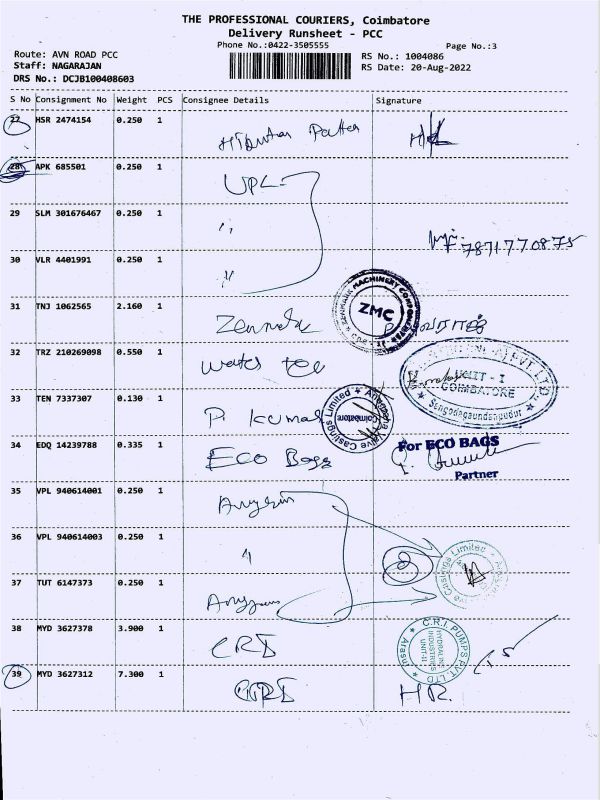 THE PROFESSIONAL COURIERS, Coimbatore
Delivery Runsheet - PCC
Phone No.:0422-3505555
Page No.:3
Route: AVN ROAD PCC
Staff: NAGARAJAN
DRS No.: DCJB100408603
RS No.: 1004086
RS Date: 20-Aug-2022
S No Consignment No Weight PCS Consignee Details Signature
27 HSR 2474154 0.250 1
28 APK 685501 0.250 1 UPL
29 SLM 301676467 0.250 1 ,,
7871770875
30 VLR 4401991 0.250 1 ,,
31 TNJ 1062565 2.160 1
ZENMARK MACHINERY COMPONENTS
ZMC
32 TRZ 210269098 0.550 1
UNIT - I
COIMBATORE
Sengodagaundanpudur
33 TEN 7337307 0.130 1 P. Kumar
Valve Castings Limited
Coimbatore
34 EDQ 14239788 0.335 1 ECO Bags
For ECO BAGS
Partner
35 VPL 940614001 0.250 1
36 VPL 940614003 0.250 1 ,,
2
Castings Limited
37 TUT 6147373 0.250 1
38 MYD 3627378 3.900 1 CRI
C.R.I PUMPS PVT. LTD
HYDRALINE
INDUSTRIES
UNIT-II
Arasur
39 MYD 3627312 7.300 1 CRI HR.